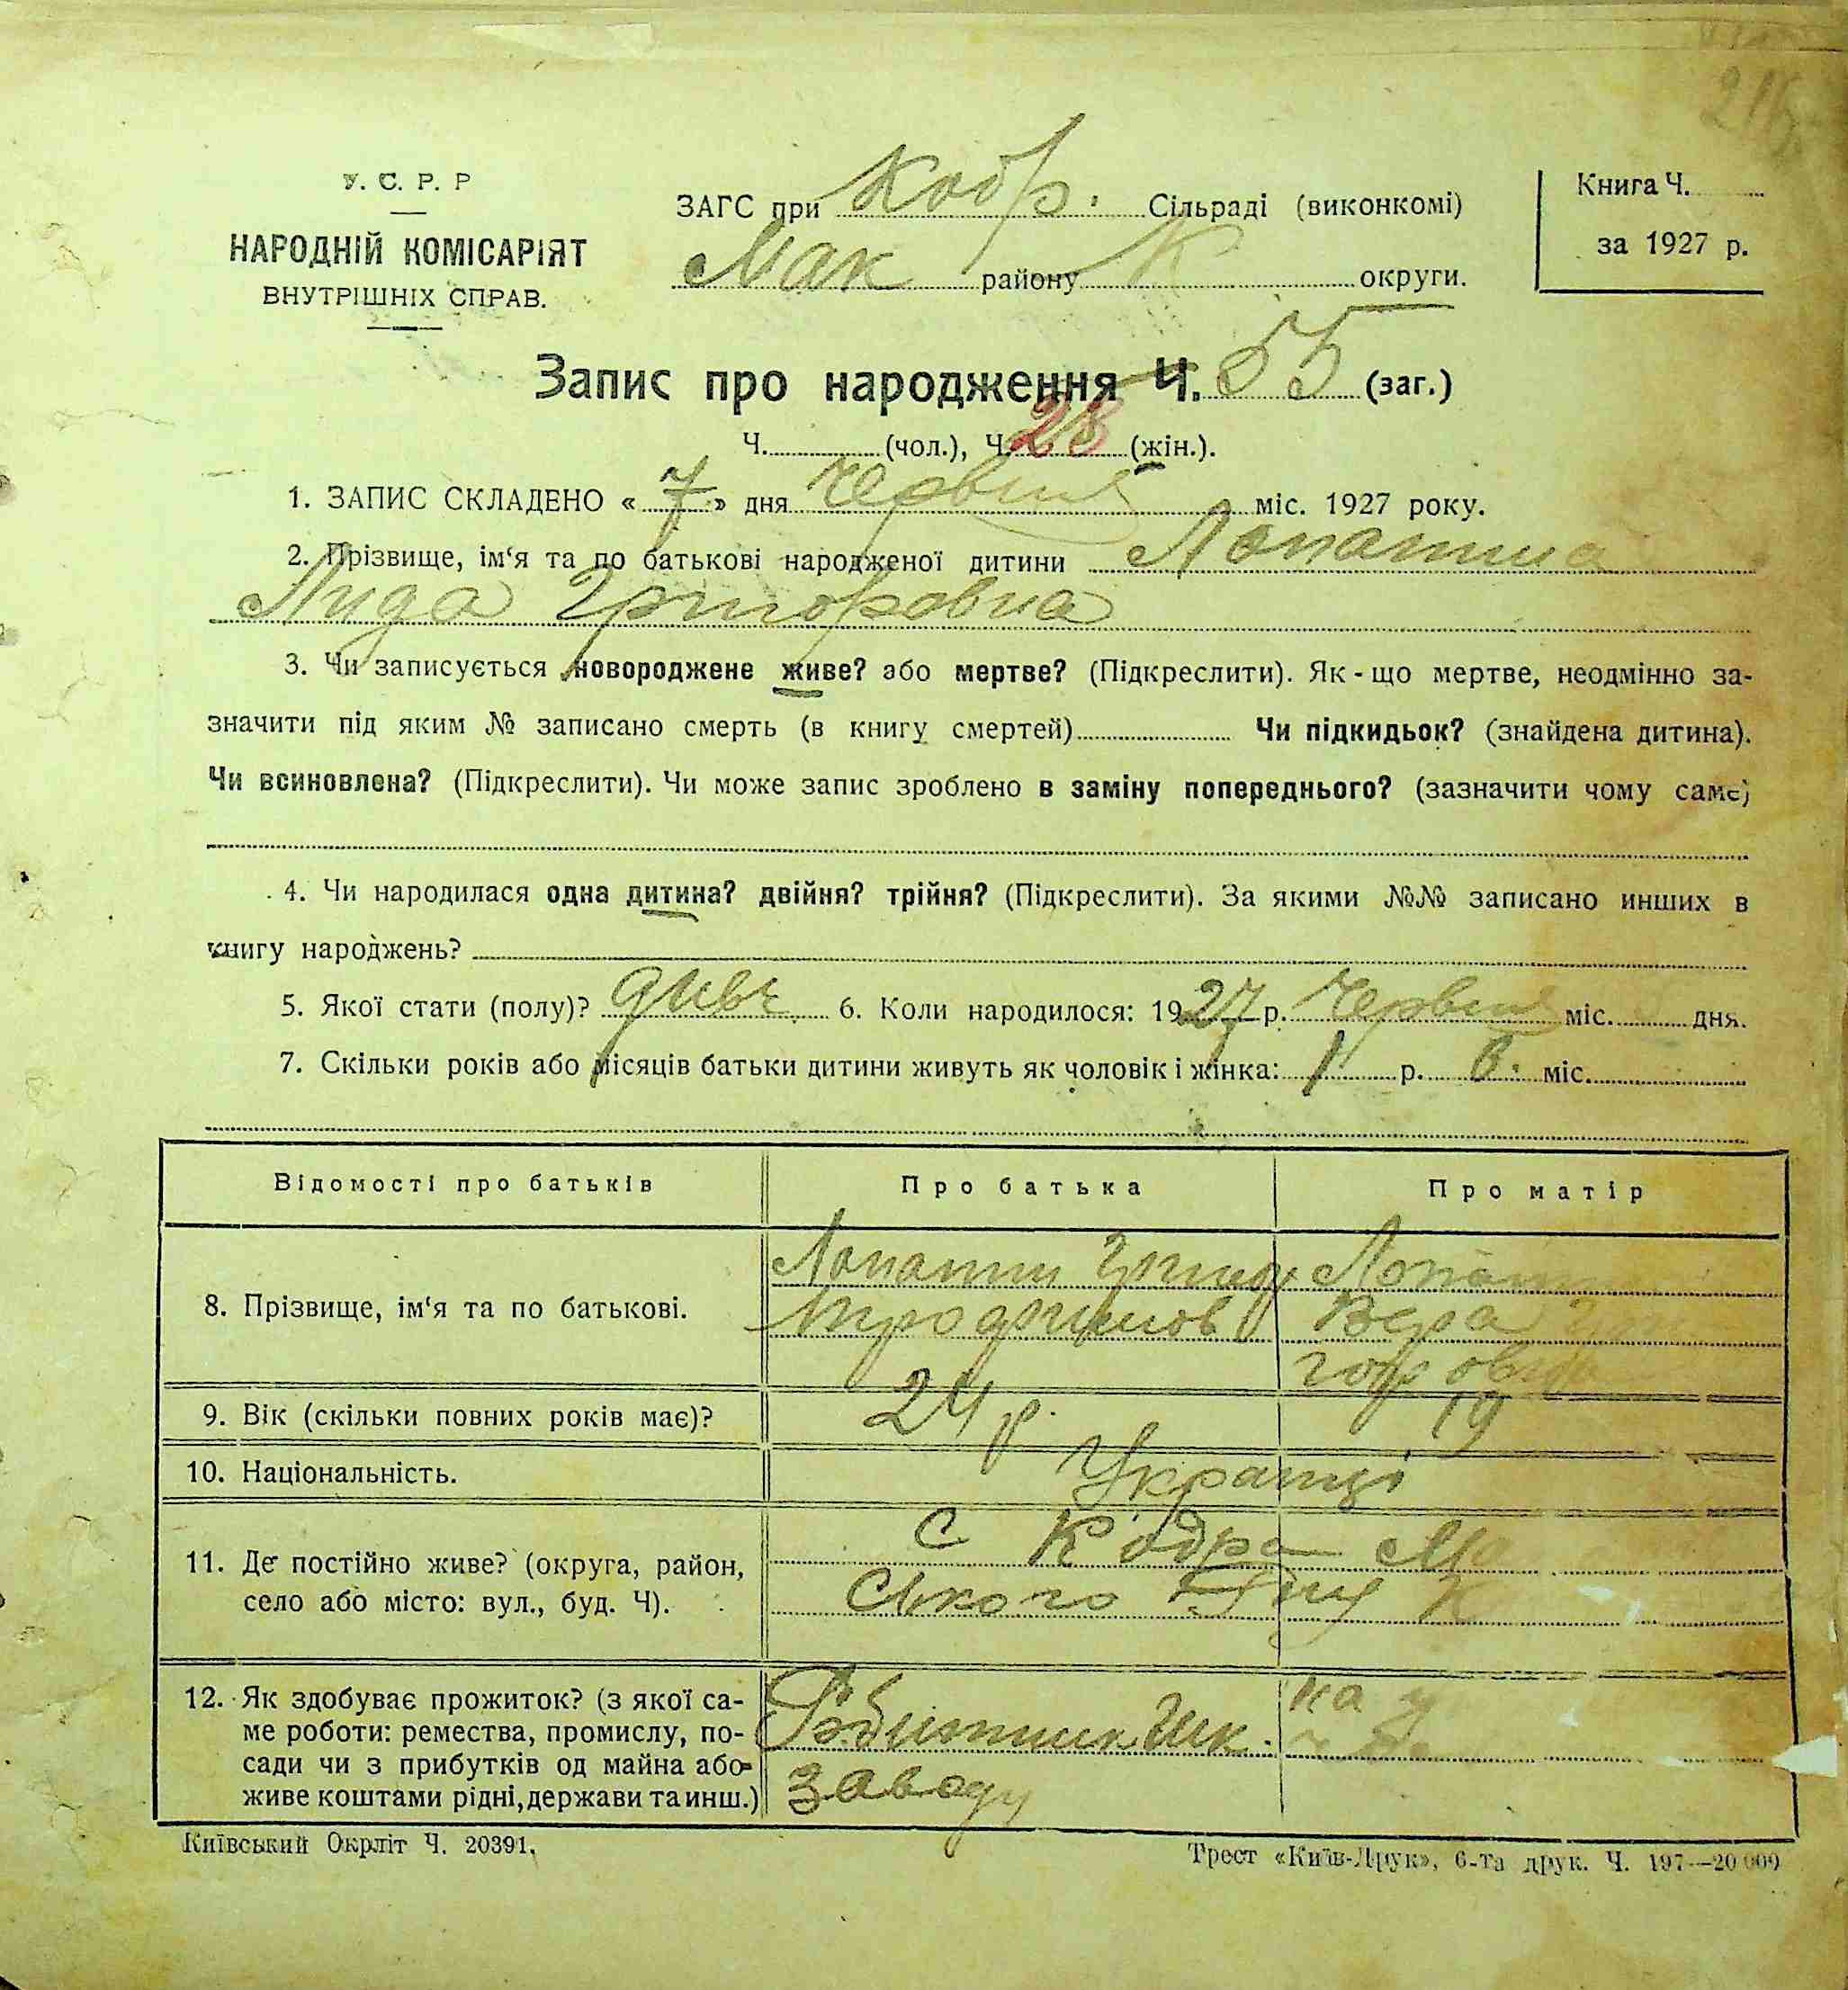 216
У. С. Р. Р
НАРОДНІЙ КОМІСАРІЯТ
ВНУТРІШНІХ СПРАВ.
ЗАГС при Кодр. Сільраді (виконкомі)
Мак району К округи.
Книга Ч.
за 1927 р.
Запис про народження Ч. 55 (заг.)
Ч. (чол.), Ч. 28 (жін.).
1. ЗАПИС СКЛАДЕНО « 7 » дня Червня міс. 1927 року.
2. Прізвище, ім‘я та по батькові народженої дитини Лопатина
Лида Григоровна
3. Чи записується новороджене живе? або мертве? (Підкреслити). Як-що мертве, неодмінно за-
значити під яким № записано смерть (в книгу смертей) Чи підкидьок? (знайдена дитина).
Чи всиновлена? (Підкреслити). Чи може запис зроблено в заміну попереднього? (зазначити чому саме)
4. Чи народилася одна дитина? двійня? трійня? (Підкреслити). За якими №№ записано инших в
книгу народжень?
5. Якої стати (полу)? дивч. 6. Коли народилося: 1927 р. Червня міс. дня.
7. Скільки років або місяців батьки дитини живуть як чоловік і жінка: 1 р. 6. міс.
Відомості про батьків Про батька Про матір
8. Прізвище, ім‘я та по батькові.
Лопатин Григор Лопат
Вера
9. Вік (скільки повних років має)? 24 р. 19
10. Національність. Украінці
11. Де постійно живе? (округа, район,
село або місто: вул., буд. Ч).
С Кодра Ма
ського К
12. Як здобуває прожиток? (з якої са-
ме роботи: ремества, промислу, по-
сади чи з прибутків од майна або
живе коштами рідні, держави та инш.)
Робитник
заводу
на
Київський Окрліт Ч. 20391.
Трест «Київ-Друк», 6-та друк. Ч. 197—20 000